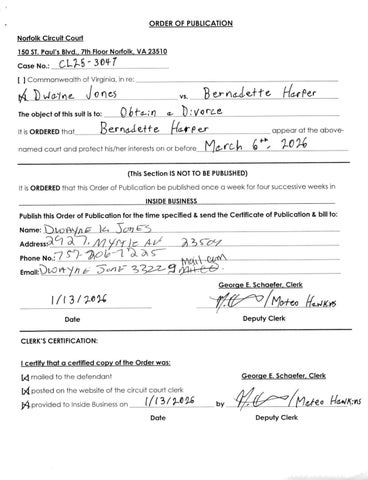 ORDER OF PUBLICATION
Norfolk Circuit Court
150 ST. Paul's Blvd., 7th Floor Norfolk, VA 23510
Case No.: CL25-3047
[ ] Commonwealth of Virginia, in re:
Dwayne Jones vs. Bernadette Harper
The object of this suit is to: Obtain a Divorce
It is ORDERED that Bernadette Harper appear at the above-
named court and protect his/her interests on or before March 6th, 2026
(This Section IS NOT TO BE PUBLISHED)
It is ORDERED that this Order of Publication be published once a week for four successive weeks in
INSIDE BUSINESS
Publish this Order of Publication for the time specified & send the Certificate of Publication & bill to:
Name: DWAYNE K. JONES
Address: 2927 Myrtle AV 23504
Phone No.: 757-206-7225
Email: Dwayne 33229 mail.com
George E. Schaefer, Clerk
1/13/2026 / Mateo Hawkins
Date Deputy Clerk
CLERK'S CERTIFICATION:
I certify that a certified copy of the Order was:
mailed to the defendant George E. Schaefer, Clerk
posted on the website of the circuit court clerk
provided to Inside Business on 1/13/2026 by / Mateo Hawkins
Date Deputy Clerk